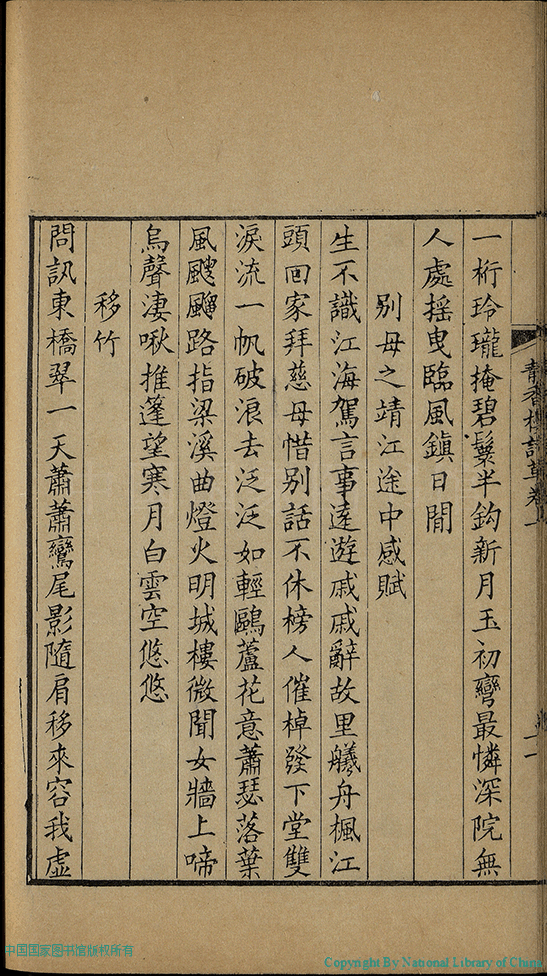 青香樓詩草卷一
一桁玲瓏掩碧鬟半鈎新月玉初彎最憐深院無
人處搖曳臨風鎮日閒
別母之靖江途中感賦
生不識江海駕言事遠遊戚戚辭故里艤舟楓江
頭回家拜慈母惜別話不休榜人催棹發下堂雙
淚流一帆破浪去泛泛如輕鷗蘆花意蕭瑟落葉
風颼飀路指梁溪曲燈火明城樓微聞女牆上啼
烏聲淒啾推篷望寒月白雲空悠悠
移竹
問訊東橋翠一天蕭蕭鸞尾影隨肩移來容我虛
中国国家图书馆版权所有
Copyright By National Library of China